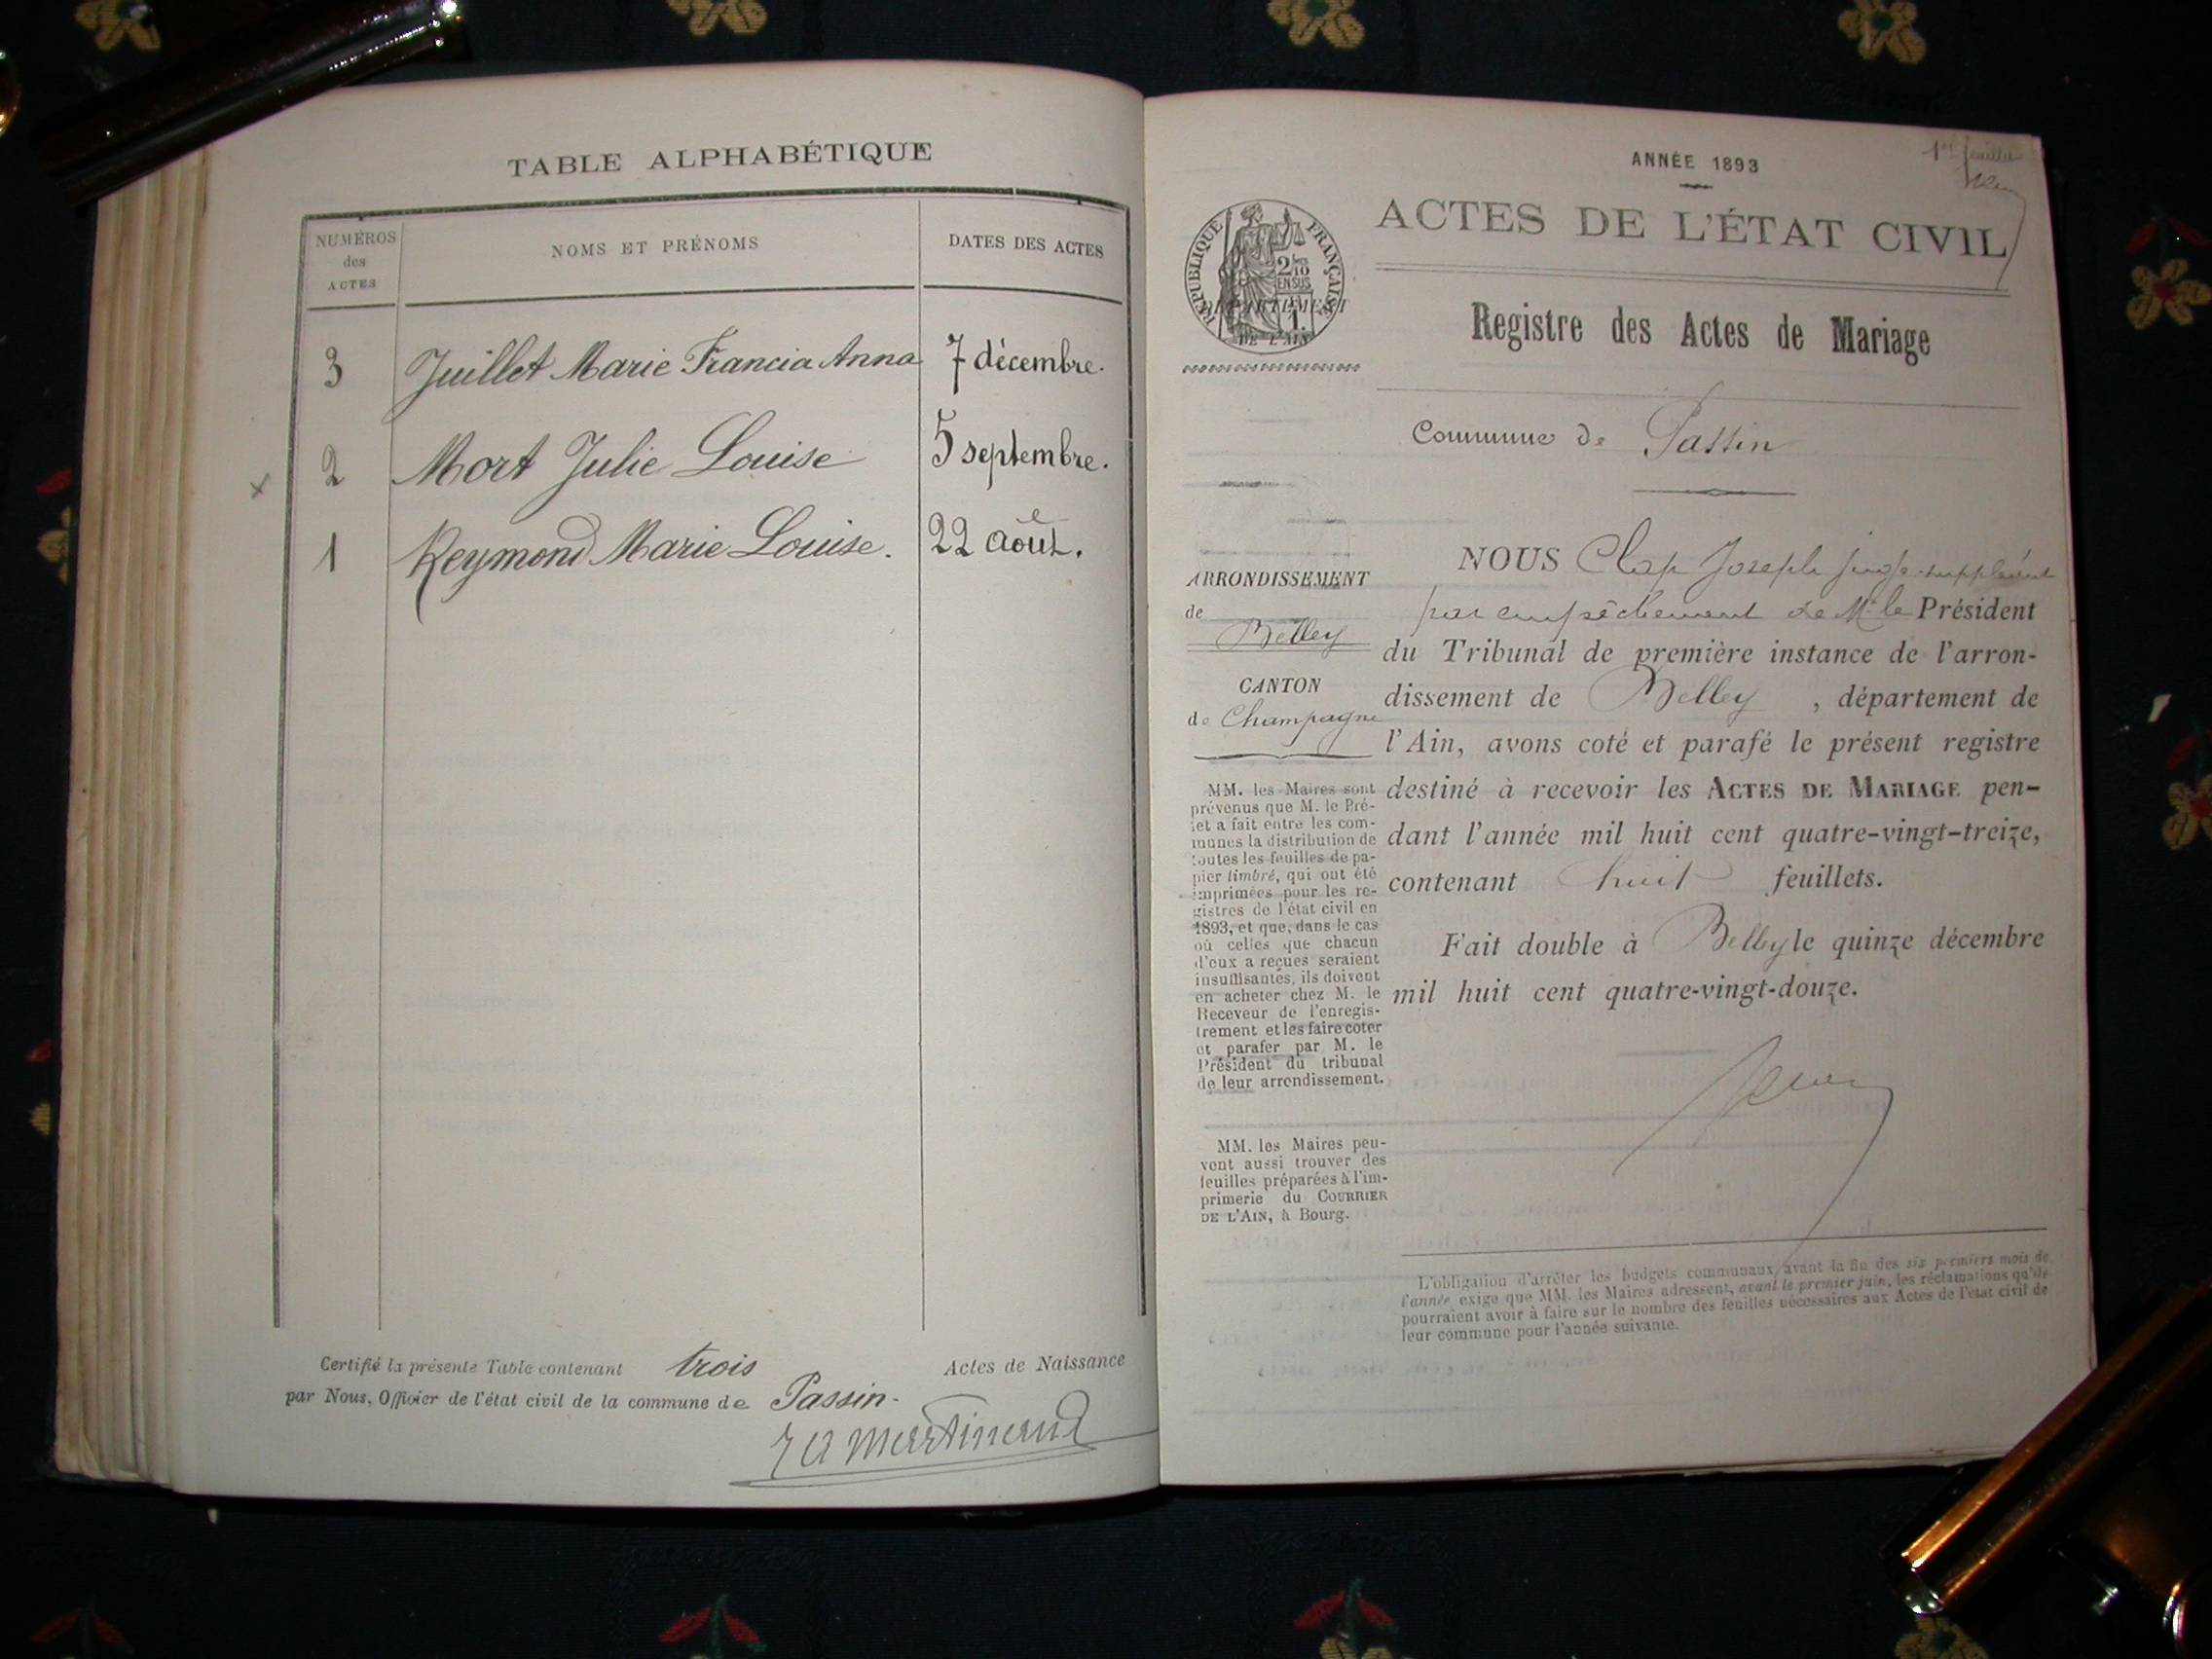 TABLE ALPHABÉTIQUE
NUMÉROS
des
ACTES
NOMS ET PRÉNOMS
DATES DES ACTES
3 Juillet Marie Francia Anna 7 décembre.
2 Mort Julie Louise 5 septembre.
1 Reymond Marie Louise. 22 août.
Certifié la présente Table contenant trois Actes de Naissance
par Nous, Officier de l'état civil de la commune de Passin.
Martinand
1er feuillet
ANNÉE 1893
ACTES DE L'ÉTAT CIVIL
RÉPUBLIQUE FRANÇAISE
2/10
EN SUS
DÉPARTEMENT
DE L'AIN
Registre des Actes de Mariage
Commune de Passin
ARRONDISSEMENT
de
Belley
CANTON
de Champagne
MM. les Maires sont
prévenus que M. le Pré-
fet a fait entre les com-
munes la distribution de
toutes les feuilles de pa-
pier timbré, qui ont été
imprimées pour les re-
gistres de l'état civil en
1893, et que, dans le cas
où celles que chacun
d'eux a reçues seraient
insuffisantes, ils doivent
en acheter chez M. le
Receveur de l'enregis-
trement et les faire coter
et parafer par M. le
Président du tribunal
de leur arrondissement.
MM. les Maires peu-
vent aussi trouver des
feuilles préparées à l'im-
primerie du COURRIER
DE L'AIN, à Bourg.
NOUS Clap Joseph juge-suppléant
par empêchement de Mr le Président
du Tribunal de première instance de l'arron-
dissement de Belley, département de
l'Ain, avons coté et parafé le présent registre
destiné à recevoir les ACTES DE MARIAGE pen-
dant l'année mil huit cent quatre-vingt-treize,
contenant huit feuillets.
Fait double à Belley le quinze décembre
mil huit cent quatre-vingt-douze.
L'obligation d'arrêter les budgets communaux avant la fin des six premiers mois de
l'année exige que MM. les Maires adressent, avant le premier juin, les réclamations qu'ils
pourraient avoir à faire sur le nombre des feuilles nécessaires aux Actes de l'état civil de
leur commune pour l'année suivante.